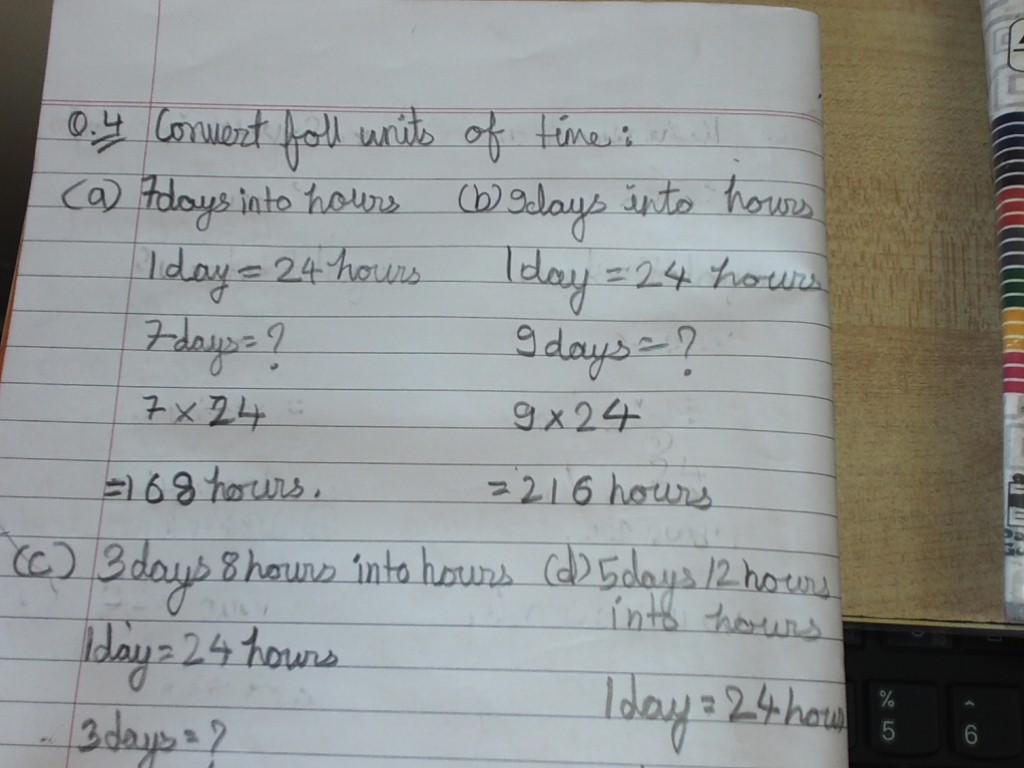 Q.4 Convert foll units of time:
(a) 7days into hours (b) 9days into hours
1day = 24 hours 1day = 24 hours
7days = ? 9days = ?
7 x 24 9 x 24
= 168 hours. = 216 hours
(c) 3days 8hours into hours (d) 5days 12hours
into hours
1day = 24 hours
1day = 24 hour
3days = ?
%
5
^
6